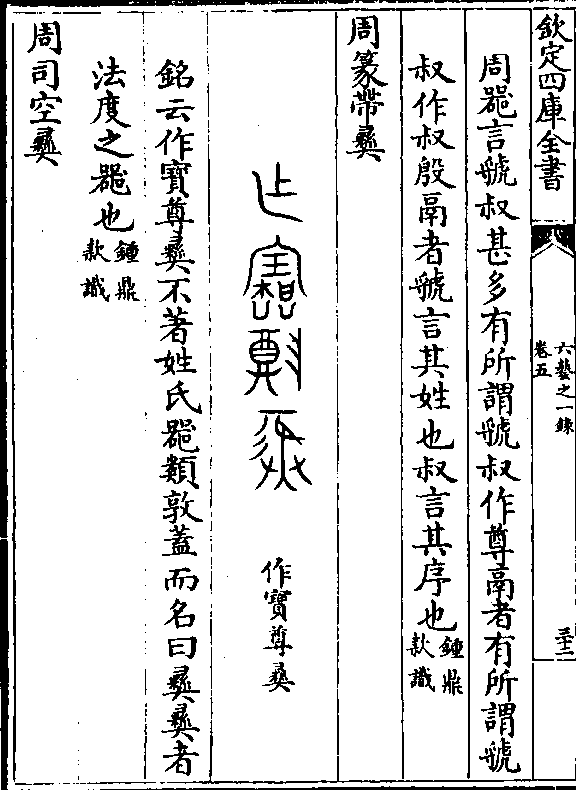 欽定四庫全書
六藝之一錄
卷五
三十二
周器言虢叔甚多有所謂虢叔作尊鬲者有所謂虢
叔作叔殷鬲者虢言其姓也叔言其序也鍾鼎
款識
周篆帶彝
作寶尊彝
銘云作寶尊彝不著姓氏器類敦蓋而名曰彝彝者
法度之器也鍾鼎
款識
周司空彝